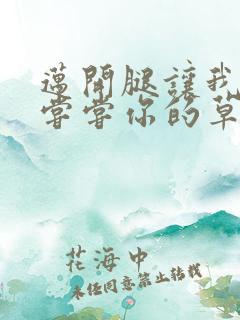 邁開腿讓我
嘗嘗你的草
花海中
未經同意禁止轉載